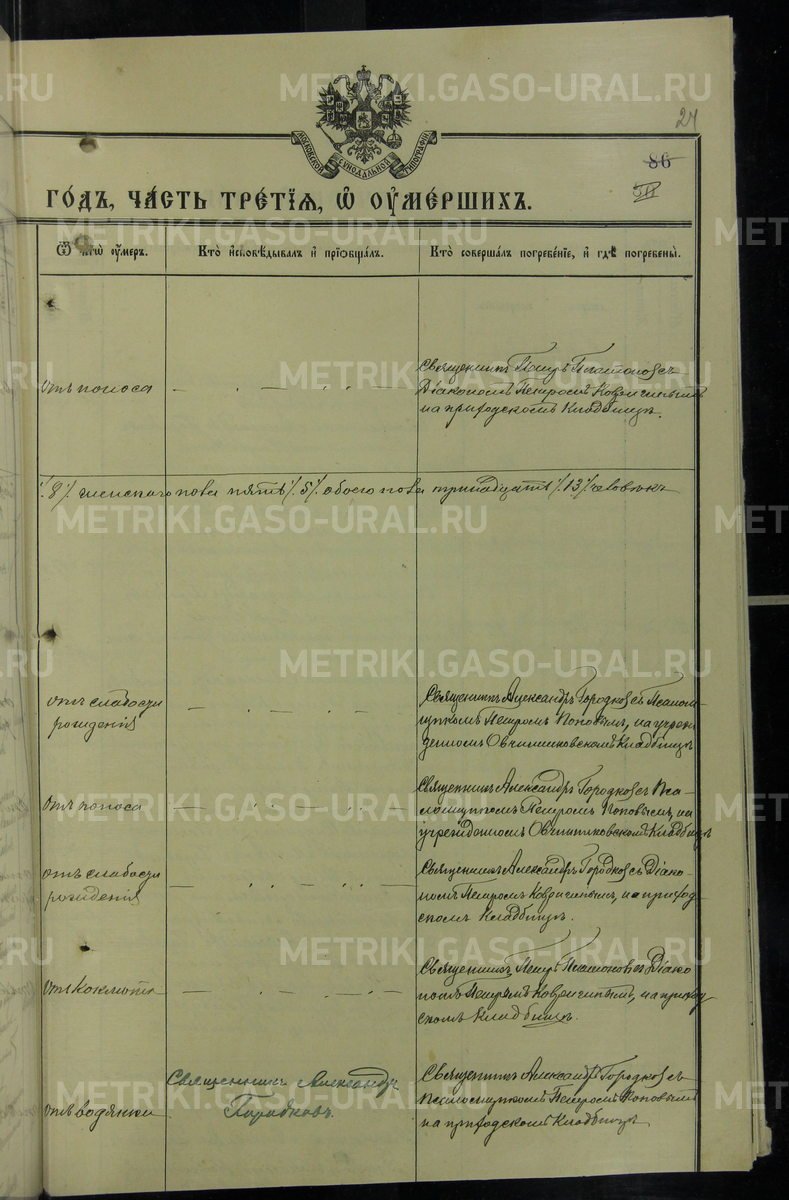 METRIKI.GASO-URAL.RU
27
МОСКОВСКОЙ СѴНОДАЛЬНОЙ ТИПОГРАФІИ
86
ГО́ДЪ, ЧА́СТЬ ТРЕ́ТІЯ, Ѽ ОУ҆МЕ́РШИХЪ.
Ѿ чегѡ̀ ᲂу҆́меръ.
Кто̀ и҆сповѣ́дывалъ и҆ прїѡбща́лъ.
Кто̀ соверша́лъ погребе́нїе, и҆ гдѣ̀ погребены̀.
отъ поноса
Священникъ Петръ Платоновъ съ
Діакономъ Петромъ Ковригинымъ
на приходскомъ кладбищѣ.
/.8/. женскаго пола пять /.5/. обоего пола тринадцать /.13/. человѣкъ
отъ слабости
рожденія
Священникъ Александръ Городковъ съ Псалом-
щикомъ Петромъ Поповымъ, на учреж
денномъ Овчинниковскомъ кладбищѣ
отъ поноса
Священникъ Александръ Городковъ съ Пса-
ломщикомъ Петромъ Поповымъ, на
учрежденномъ Овчинниковскомъ кладбищѣ
отъ слабости
рожденія
Священникъ Александръ Городковъ съ Діако-
номъ Петромъ Ковригинымъ, на приход-
скомъ кладбищѣ.
отъ коклюша
Священникъ Петръ Платоновъ съ Діако
номъ Петромъ Ковригинымъ, на приход-
скомъ кладбищѣ.
отъ водянки
Священникъ Александръ
Городковъ.
Священникъ Александръ Городковъ съ
псаломщикомъ Петромъ Поповымъ
на приходскомъ кладбищѣ